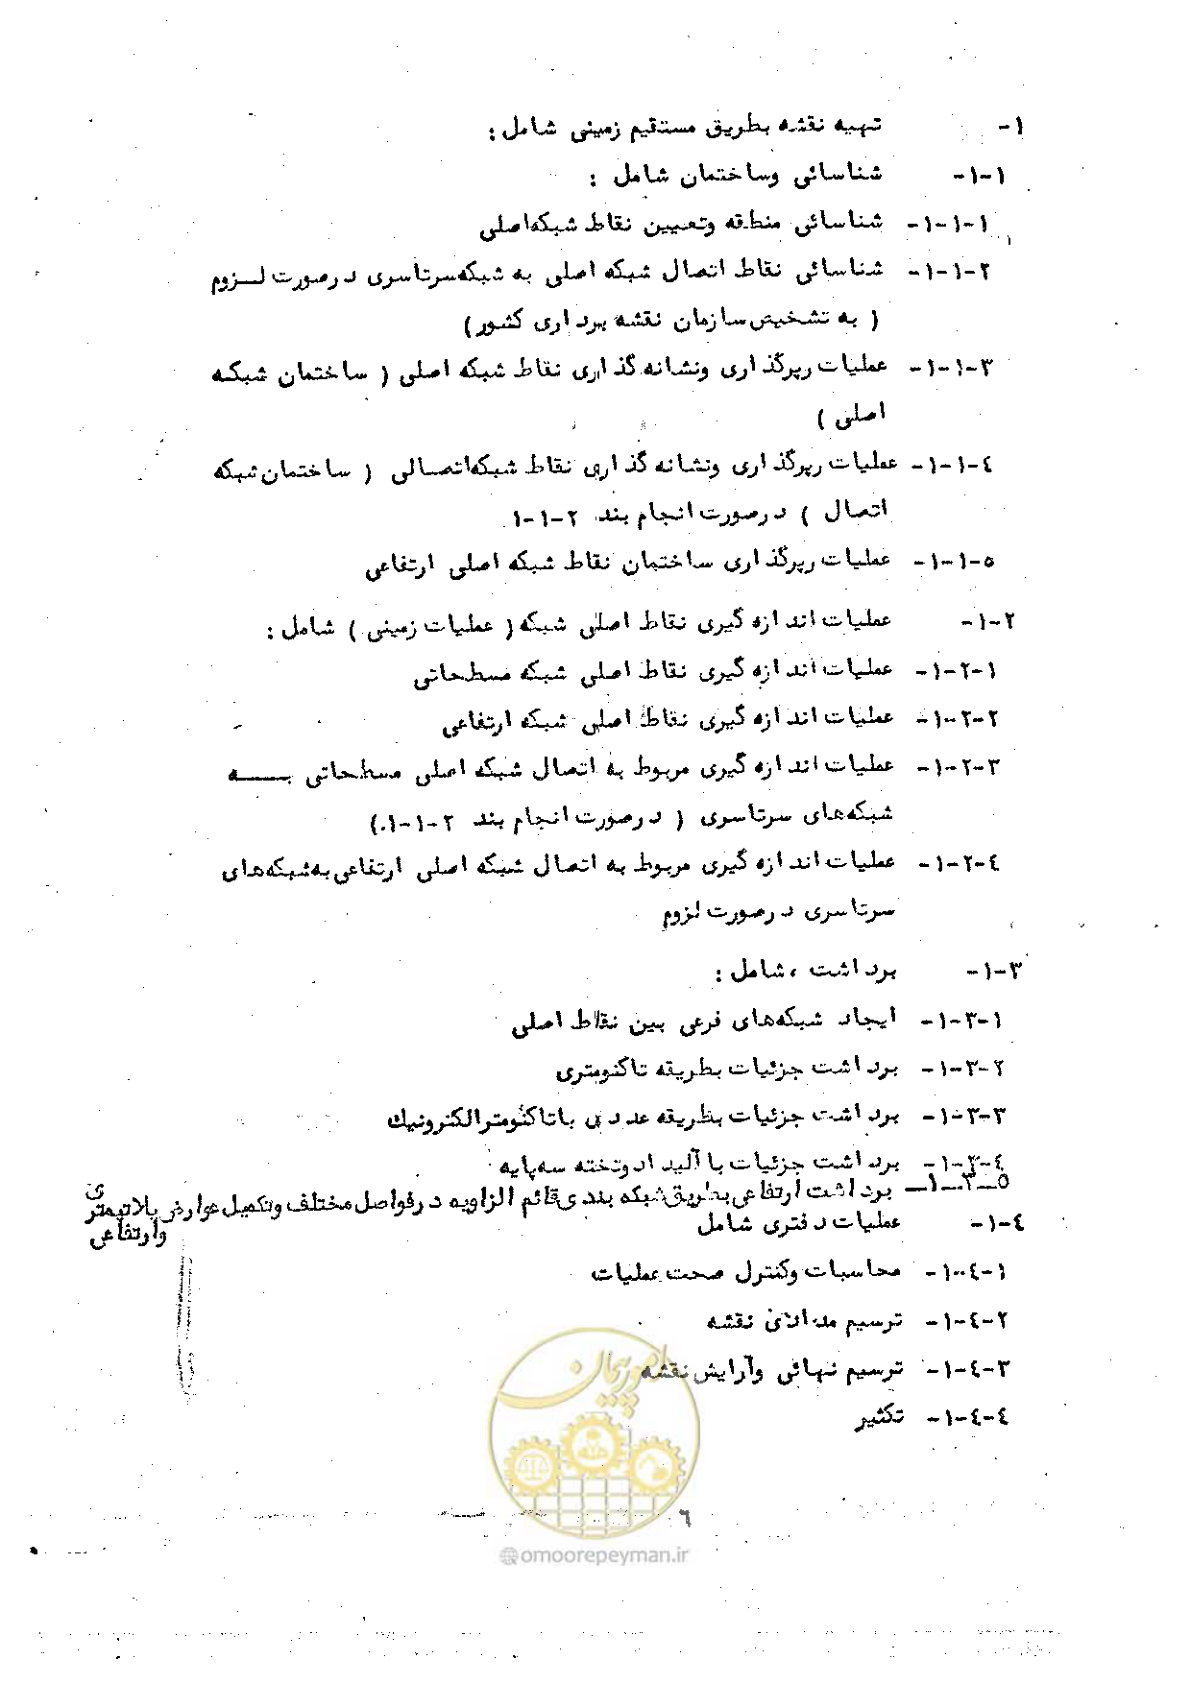 ۱- تهیه نقشه بطریق مستقیم زمینی شامل :
۱-۱- شناسائی وساختمان شامل :
۱-۱-۱- شناسائی منطقه وتعیین نقاط شبکه‌اصلی
۱-۱-۲- شناسائی نقاط اتصال شبکه اصلی به شبکه‌سرتاسری درصورت لـــزوم
( به تشخیص‌سازمان نقشه برداری کشور)
۱-۱-۳- عملیات رپرگذاری ونشانه‌گذاری نقاط شبکه اصلی ( ساختمان شبکه
اصلی )
۱-۱-٤- عملیات رپرگذاری ونشانه گذاری نقاط شبکه‌اتصالی ( ساختمان‌شبکه
اتصال ) درصورت انجام بند ۲-۱-۱
۱-۱-۵- عملیات رپرگذاری ساختمان نقاط شبکه اصلی ارتفاعی
۱-۲- عملیات اندازه گیری نقاط اصلی شبکه ( عملیات زمینی ) شامل :
۱-۲-۱- عملیات اندازه گیری نقاط اصلی شبکه مسطحاتی
۱-۲-۲- عملیات اندازه گیری نقاط اصلی شبکه ارتفاعی
۱-۲-۳- عملیات اندازه گیری مربوط به اتصال شبکه اصلی مسطحاتی بـــــه
شبکه‌های سرتاسری ( درصورت انجام بند ۲-۱-۱.)
۱-۲-٤- عملیات اندازه گیری مربوط به اتصال شبکه اصلی ارتفاعی به‌شبکه‌های
سرتاسری درصورت لزوم
۱-۳- برداشت ، شامل :
۱-۳-۱- ایجاد شبکه‌های فرعی بین نقاط اصلی
۱-۳-۲- برداشت جزئیات بطریقه تاکئومتری
۱-۳-۳- برداشت جزئیات بطریقه عددی باتاکئومترالکترونیک
۱-۳-٤- برداشت جزئیات با آلیدادوتخته سه‌پایه
۱-۳-۵- برداشت ارتفاعی بطریق‌شبکه بندی‌قائم الزاویه درفواصل مختلف وتکمیل‌عوارض‌پلانیمتری
وارتفاعی
۱-٤- عملیات دفتری شامل
۱-٤-۱- محاسبات وکنترل صحت عملیات
۱-٤-۲- ترسیم مدادی نقشه
۱-٤-۳- ترسیم نهائی وآرایش نقشه
۱-٤-٤- تکثیر
امورپیمان
٦
@omoorepeyman.ir